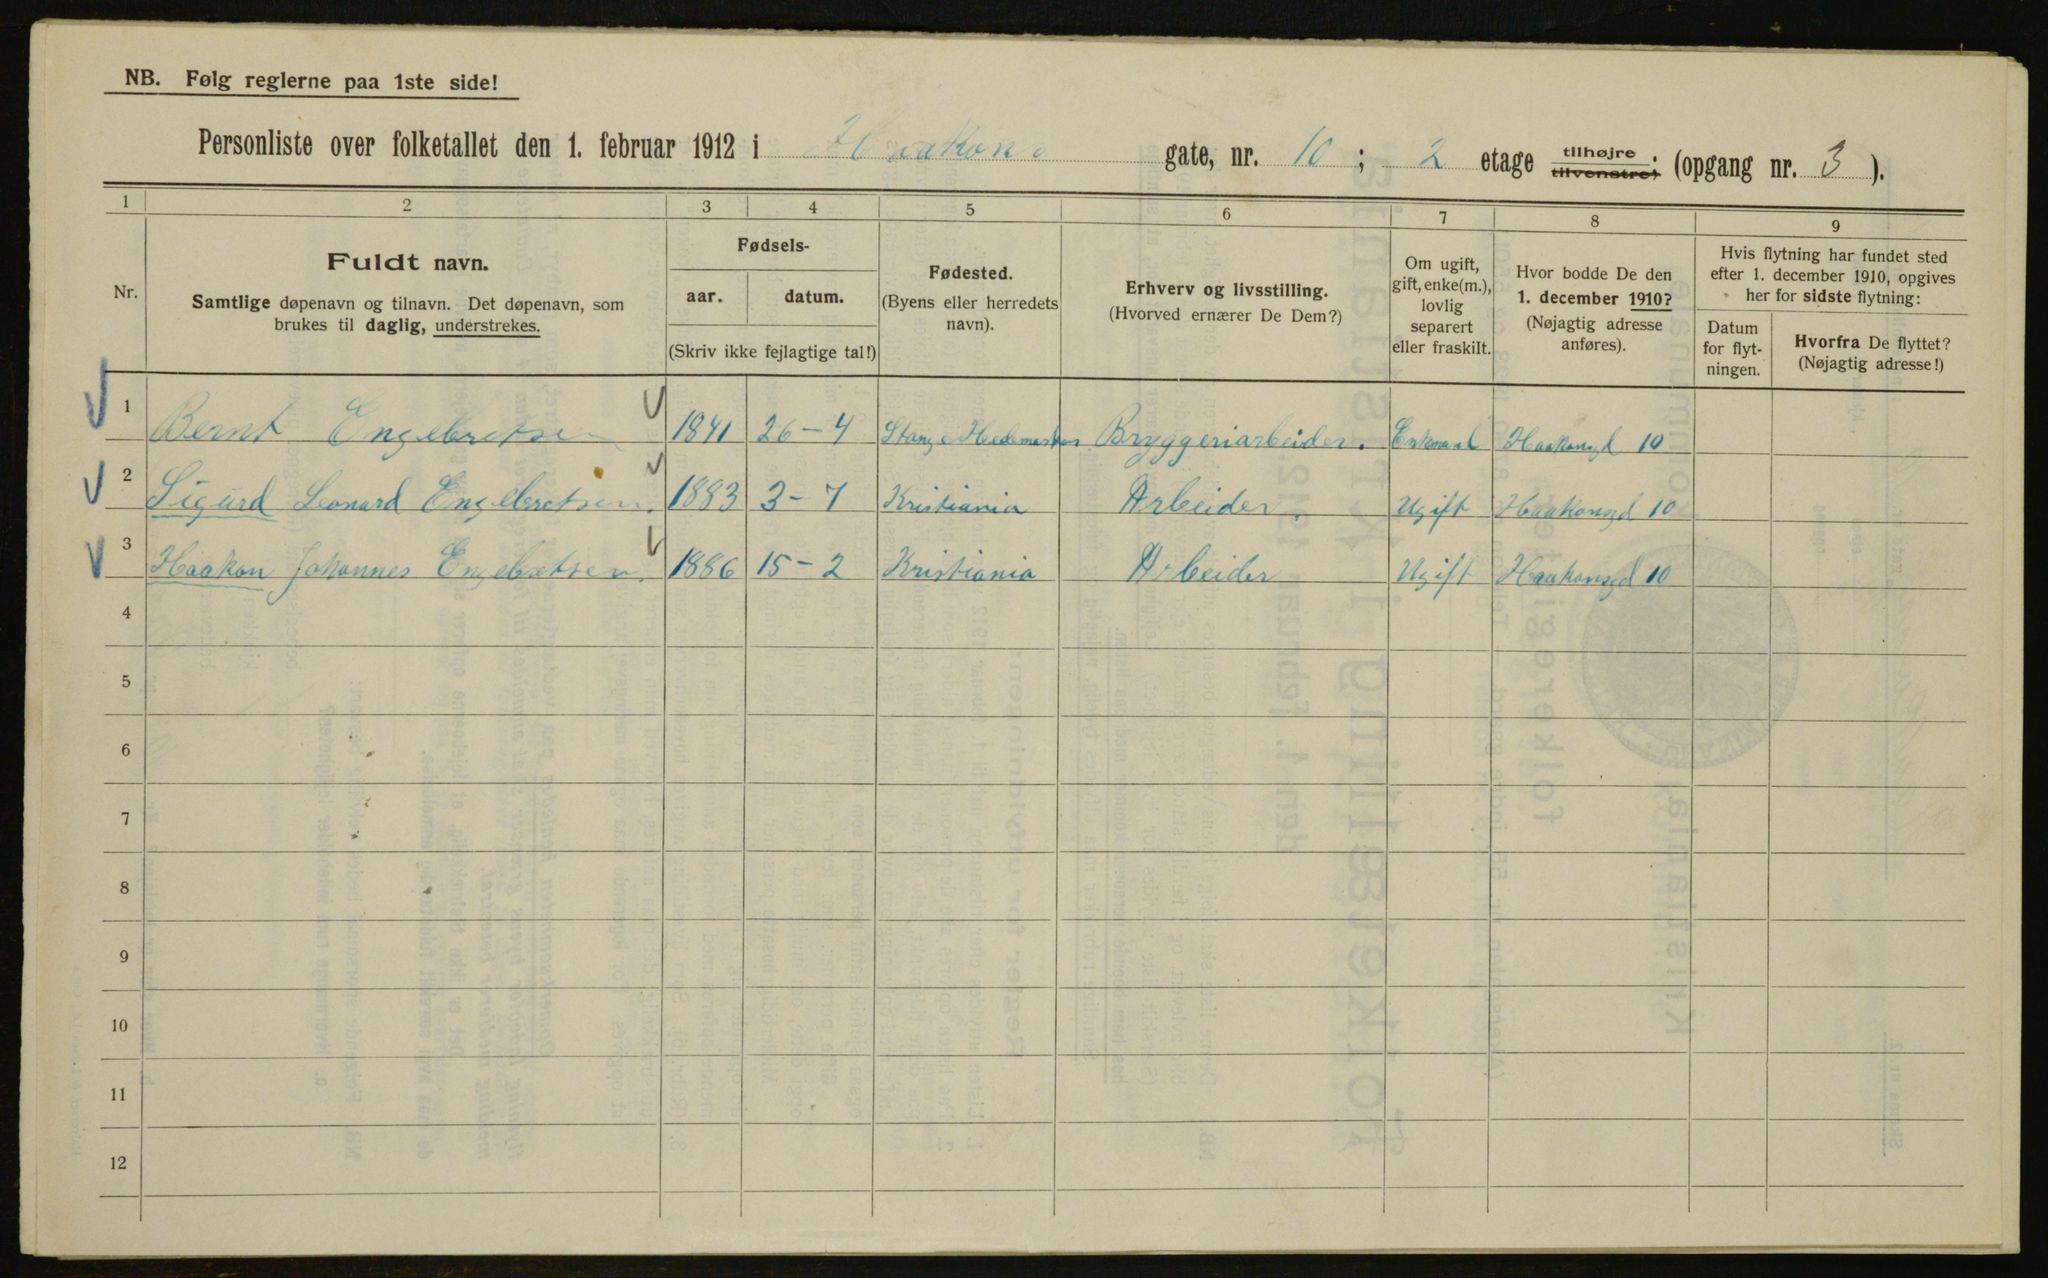 NB. Følg reglerne paa 1ste side!
Personliste over folketallet den 1. februar 1912 i Haakons gate, nr. 10; 2 etage tilhøjre tilvenstre) (opgang nr. 3).
1 2 3 4 5 6 7 8 9
Nr.
Fuldt navn.
Samtlige døpenavn og tilnavn. Det døpenavn, som
brukes til daglig, understrekes.
Fødsels-
aar. datum.
(Skriv ikke fejlagtige tal!)
Fødested.
(Byens eller herredets
navn).
Erhverv og livsstilling.
(Hvorved ernærer De Dem?)
Om ugift,
gift, enke(m.),
lovlig
separert
eller fraskilt.
Hvor bodde De den
1. december 1910?
(Nøjagtig adresse
anføres).
Hvis flytning har fundet sted
efter 1. december 1910, opgives
her for sidste flytning:
Datum
for flyt-
ningen.
Hvorfra De flyttet?
(Nøjagtig adresse!)
1 Bernt Engebretsen 1841 26-4 Stange Hedemarken Bryggeriarbeider. Enkemand Haakonsgd 10
2 Sigurd Leonard Engebretsen. 1883 3-7 Kristiania Arbeider. Ugift Haakonsgd 10
3 Haakon Johannes Engebretsen. 1886 15-2 Kristiania Arbeider Ugift Haakonsgd 10
4
5
6
7
8
9
10
11
12